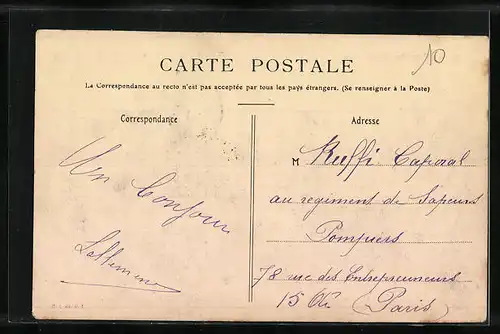 10
CARTE POSTALE
La Correspondance au recto n'est pas acceptée par tous les pays étrangers. (Se renseigner à la Poste)
Correspondance
Adresse
Un bonjour
M Ruffi Caporal
au regiment de Sapeurs
Pompiers
78 rue des Entrepreneurs
Paris